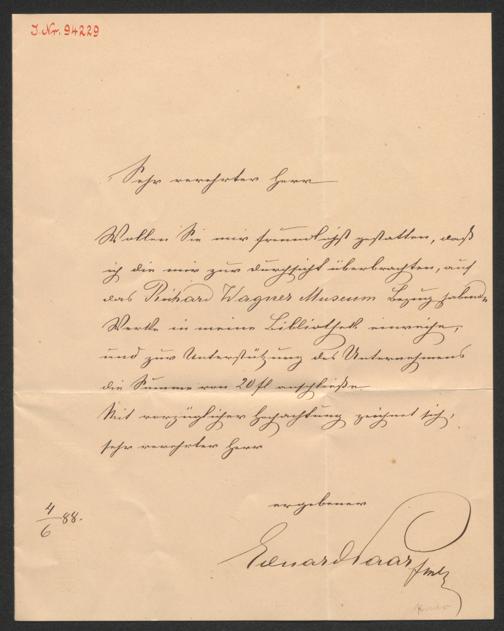 J. Nr. 94229
Sehr verehrter Herr
Wollen Sie mir freundlichst gestatten, daß
ich die mir zur Durchsicht überbrachten, auf
das Richard Wagner Museum Bezug habende
Werke in meine Bibliothek einreihe,
und zur Unterstützung des Unternehmens
die Summe von 20 fl anschließe
Mit vorzüglicher Hochachtung zeichnet sich,
sehr verehrter Herr
ergebener
4/6 88.
Eduard Paar